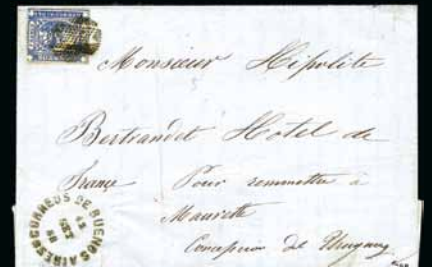 Monsieur Hipolite
Bertrandet Hotel de
France Pour remmettre à
Maurette
Concepcion del Uruguay
CORREOS DE BUENOS AIRES